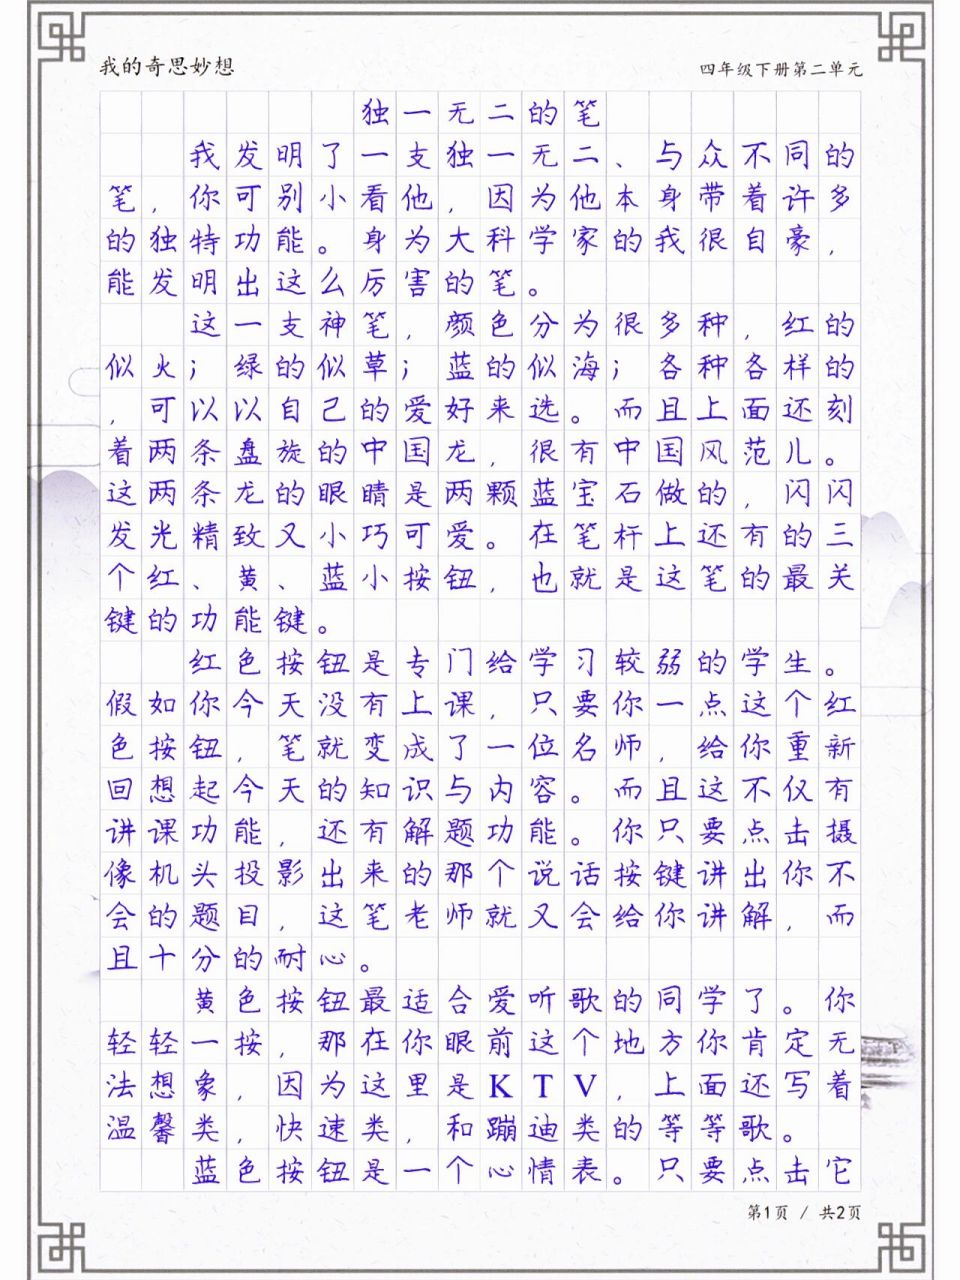 我的奇思妙想
四年级下册第二单元
独一无二的笔
我发明了一支独一无二、与众不同的
笔，你可别小看他，因为他本身带着许多
的独特功能。身为大科学家的我很自豪，
能发明出这么厉害的笔。
这一支神笔，颜色分为很多种，红的
似火；绿的似草；蓝的似海；各种各样的
，可以以自己的爱好来选。而且上面还刻
着两条盘旋的中国龙，很有中国风范儿。
这两条龙的眼睛是两颗蓝宝石做的，闪闪
发光精致又小巧可爱。在笔杆上还有的三
个红、黄、蓝小按钮，也就是这笔的最关
键的功能键。
红色按钮是专门给学习较弱的学生。
假如你今天没有上课，只要你一点这个红
色按钮，笔就变成了一位名师，给你重新
回想起今天的知识与内容。而且这不仅有
讲课功能，还有解题功能。你只要点击摄
像机头投影出来的那个说话按键讲出你不
会的题目，这笔老师就又会给你讲解，而
且十分的耐心。
黄色按钮最适合爱听歌的同学了。你
轻轻一按，那在你眼前这个地方你肯定无
法想象，因为这里是KTV，上面还写着
温馨类，快速类，和蹦迪类的等等歌。
蓝色按钮是一个心情表。只要点击它
第1页 / 共2页